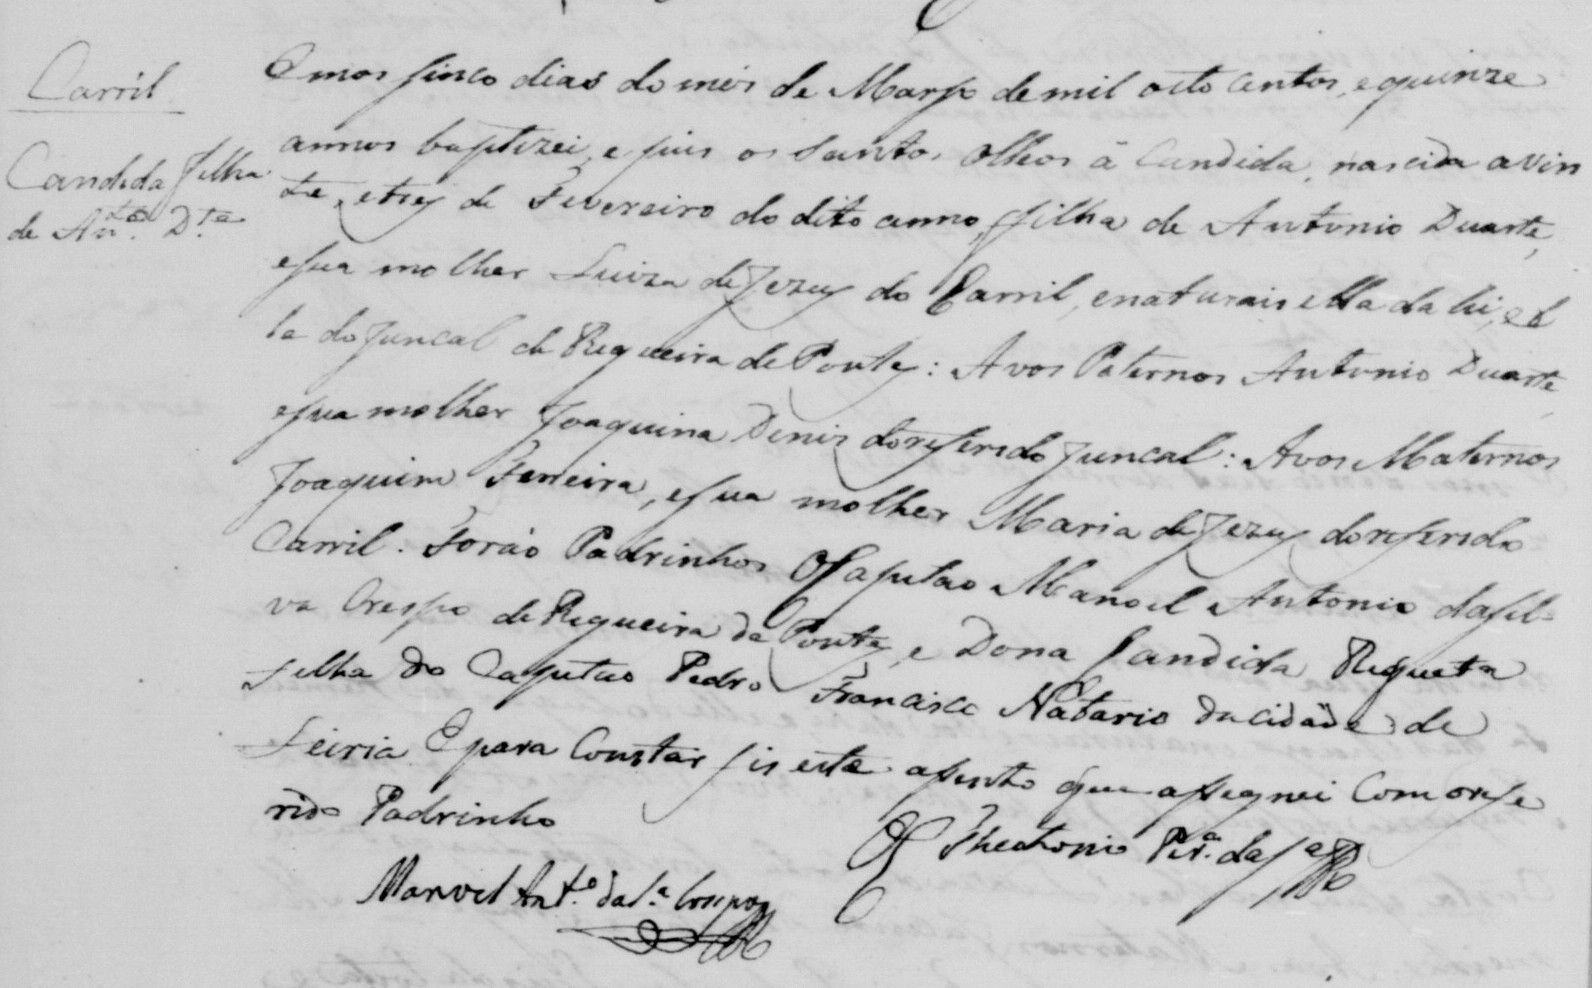 Carril
Candida filha
de Ant.º D.te
Em os sinco dias do mes de Marso de mil oito centos, e quinze
annos baptizei, e pus os Santos Olleos á Candida, nascida a vin
te, e trez de Fevereiro do dito anno, filha de Antonio Duarte,
e sua molher Luiza de Jezus do Carril, e naturais ella da hi, e el
le do Juncal de Regueira de Pontes: Avos Paternos Antonio Duarte
e sua molher Joaquina Deniz do referido Juncal: Avos Maternos
Joaquim Ferreira, e sua molher Maria de Jezus do referido
Carril. Forão Padrinhos O Capitão Manoel Antonio da Sil-
va Crespo de Regueira de Pontes, e Dona Candida Riqueta
filha do Capitão Pedro Francisco Natario da cidade de
Leiria E para Constar fis este asento que assignei Com o refe
rido Padrinho
Theotonio Per.ª da S.ª
Manoel Ant.º da S.ª Crespo